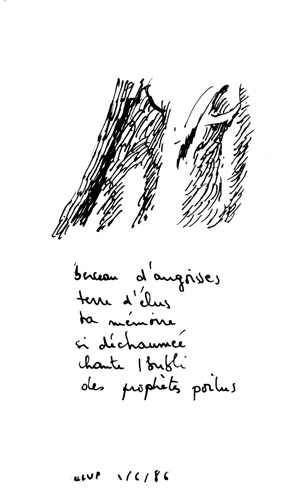 berceau d'angoisses
terre d'élus
ta mémoire
si déchaumée
chante l'oubli
des prophètes poilus
1/6/86